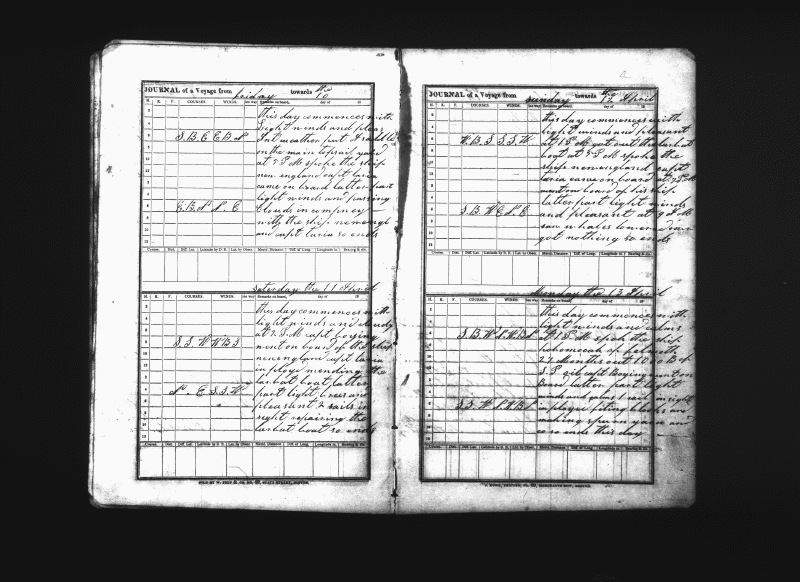 JOURNAL of a Voyage from friday towards the 10
H. K. F. COURSES. WINDS. Remarks on board, day of 18
this day commences with
light winds and pleas
S.B.E E.B.N ant weather put
on the main topsail yard
at 5 P M spoke the ship
new england capt
came on board latter part
light winds and passing
E.B.N N. E clouds in company
with the ship new engl
and capt so ends
Course. Dist. Diff. Lat. Latitude by D. R. Lat. by Obser. Merid. Distance Diff. of Long. Longitude in Bearing & dis.
saterday the 11 April
H. K. F. COURSES. WINDS. Remarks on board, day of 18
this day commences with
light winds and cloudy
at 2 P.M capt boying
S S W W B S went on board of the ship
new england capt
imploye mending the
larbot boat latter
N. E S.S.W part light breses and
pleasant 2 sails in
sight repairing the
larbot boat so ends
Course. Dist. Diff. Lat. Latitude by D. R. Lat. by Obser. Merid. Distance Diff. of Long. Longitude in Bearing & dis.
JOURNAL of a Voyage from sunday towards the 12 April
H. K. F. COURSES. WINDS. Remarks on board, day of 18
this day commences with
light winds and pleasant
W.B.S S.S.W at 1 P M got out the larbot
boat at 5 P M spoke the
ship new england capt
came on board at 7 P M
went on board of his ship
latter part light winds
S.B.W E.N.E and pleasant at
saw whales lowered
got nothing so ends
Course. Dist. Diff. Lat. Latitude by D. R. Lat. by Obser. Merid. Distance Diff. of Long. Longitude in Bearing & dis.
Monday the 13 April
H. K. F. COURSES. WINDS. Remarks on board, day of 18
this day commences with
light winds and calms
S.B.W at 1 P M spoke the ship
of falmoth
27 months out
S P oil capt Boying went on
Board latter part light
winds and calms 1 sail in sight
S S W imploye fiting blocks and
making spun yarn and
so ends this day
Course. Dist. Diff. Lat. Latitude by D. R. Lat. by Obser. Merid. Distance Diff. of Long. Longitude in Bearing & dis.